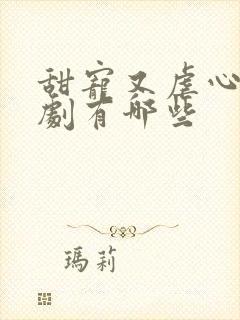 甜寵又虐心
劇有哪些
瑪莉